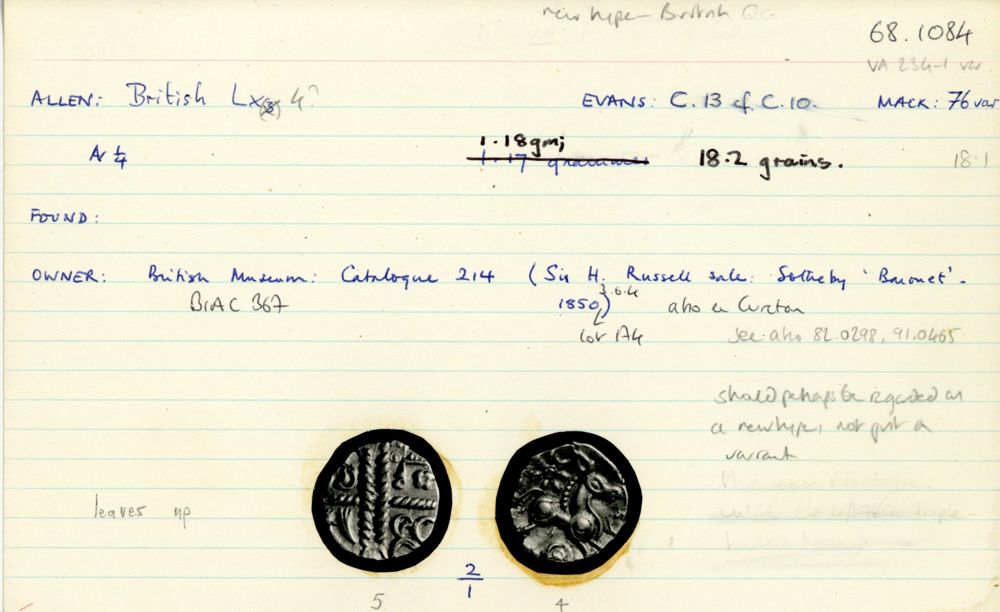 new type - British
68.1084
VA 234-1 var
ALLEN: British Lx 4? EVANS: C.13 cf. C.10. MACK: 76 var
1/4 1.18gm; 1.17 grammes 18.2 grains. 18.1
FOUND:
OWNER: British Museum: Catalogue 214 (Sir H. Russell sale: Sotheby 'Baronet'.
BMC 367 1850) also ex Cureton
lot 174 see also 82.0298, 91.0465
should perhaps be regarded as
a new type, not just a
variant
leaves up
2/1
5 4